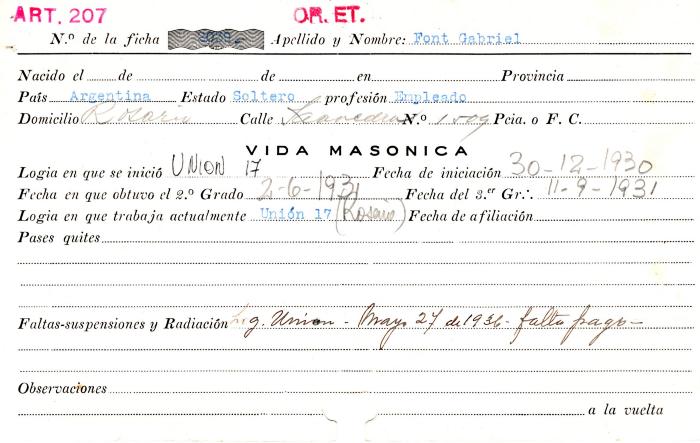 ART. 207 OR. ET.
N.º de la ficha Apellido y Nombre: Font Gabriel
Nacido el de de en Provincia
País Argentina Estado Soltero profesión Empleado
Domicilio Rosario Calle Saavedra N.º 1509 Pcia. o F. C.
VIDA MASONICA
Logia en que se inició UNION 17 Fecha de iniciación 30-12-1930
Fecha en que obtuvo el 2.º Grado 2-6-1931 Fecha del 3.er Gr∴ 11-9-1931
Logia en que trabaja actualmente Unión 17 (Rosario) Fecha de afiliación
Pases quites
Faltas-suspensiones y Radiación Log. Union - Mayo 27 de 1936 - falta pago -
Observaciones
a la vuelta